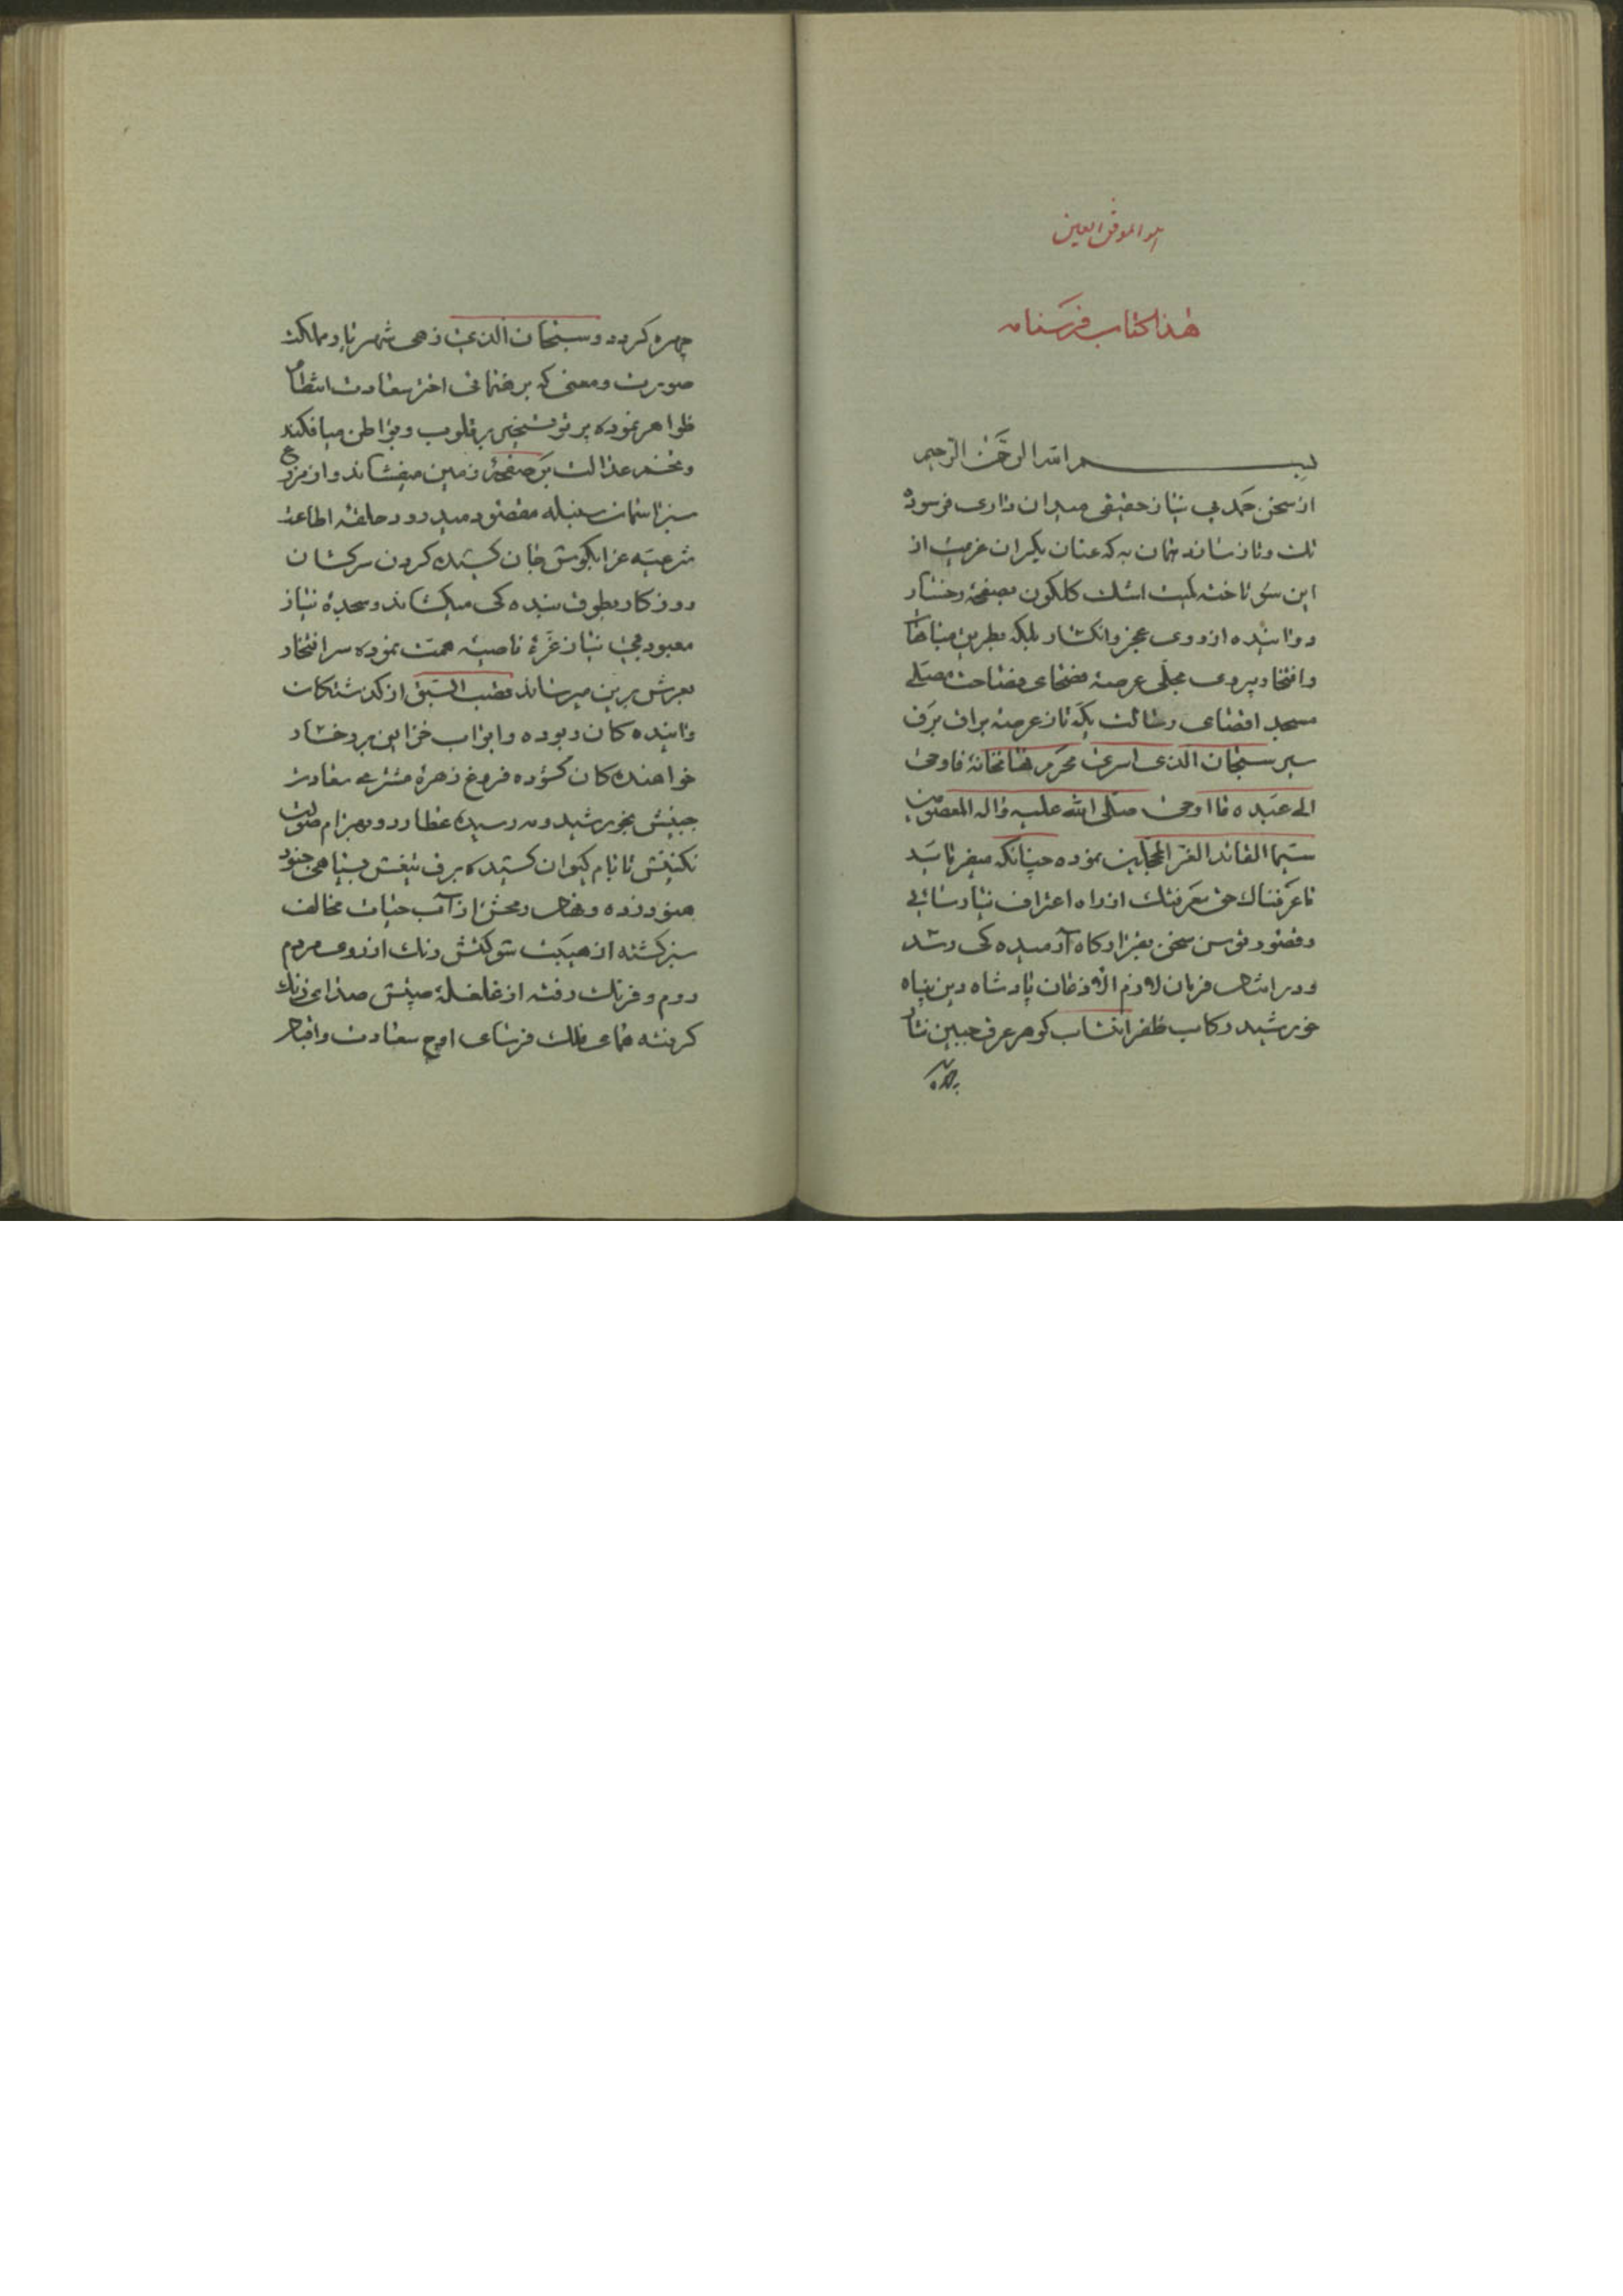 هو الموفق المعین
هذا کتاب فرسنامه
بسم الله الرحمن الرحیم
از سخن حمد بی نیاز حقیقی میدان داری فرسوده
تک و تاز ساند همان به که عنان یکران عزیمت از
این سو تاخته کمیت اشک کلکون بصفحهٔ رخسار
دوانیده از روی عجز و انکسار بلکه بطریق مباهات
و افتخار پیروی مجلی عرصهٔ فصحای فصاحت مصلی
مسجد اقصای رسالت یکه تاز عرصه براق برق
سیر سبحان الذی اسری محرم نهانخانهٔ فاوحی
الی عبده ما اوحی صلی الله علیه و اله المعصومین
سیما القائد الغر المحجلین نموده چنانکه میفرماید
ما عرفناک حق معرفتک از راه اعتراف نیارسائی
و قصور توسن سخن بقرارگاه آرمیده کی رسد
و در امتثال فرمان لازم الاذعان پادشاه دین پناه
خورشید رکاب ظفر انتساب کوهر عرق جبین نثار
چهره کردد و سبحان الذی زهی شهریار مملکت
صورت و معنی که برهنمائی اختر سعادت انتظام
ظواهر نموده پرتو تسخیر بر قلوب و بواطن میافکند
و تخم عدالت بر صفحهٔ زمین میفشاند و از مزرع
سبز اسمان سنبله مقصود میدرود حلقه اطاعت
شرعیه غرا بکوش جان کشیده کردن سرکشان
روزکار بطوق بنده کی میکشاند و سجدهٔ نیاز
معبود بی نیاز غرهٔ ناصیه همت نموده سر افتخار
بعرش برین میرساند قصب السبق از کذشتکان
و اینده کان ربوده و ابواب خزاین بر رخسار
خواهنده کان کشوده فروغ زهرهٔ مشتری سعادت
جبینش بخورشید و مه رسیده عطارد و بهرام صولت
نکینش تا بام کیوان کشیده برق تیغش بسپاهی جنود
هنود زده و نهال رمحش از آب حیات مخالف
سبز کشته از هیبت شوکتش رنک از روی مردم
روم و فرنک رفته از غلغلهٔ صیتش صدای زنک
کرفته همای فلک فرسای اوج سعادت و اقبال